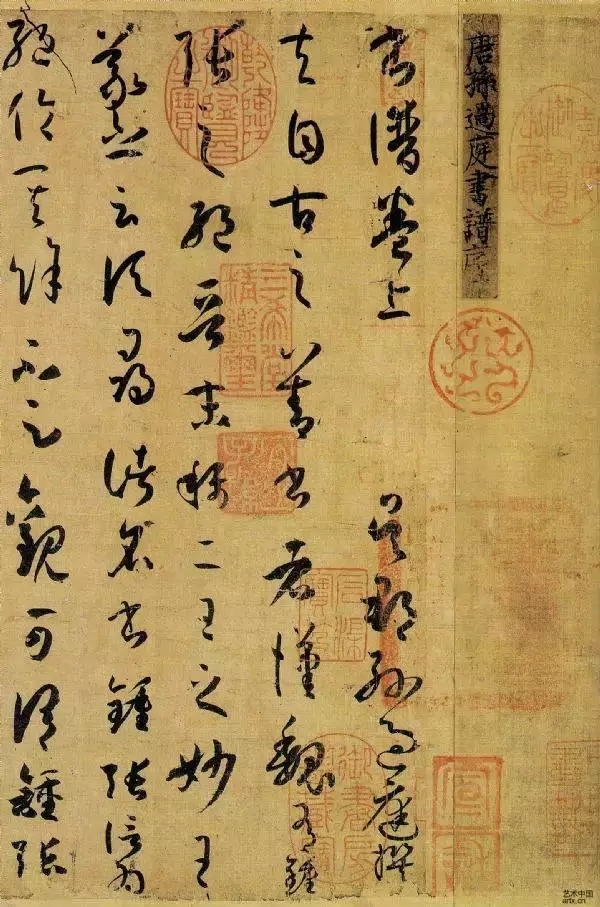 唐孫過庭書譜序
書譜卷上
吳郡孫過庭撰
夫自古之善書者漢魏有鍾
張之絕晉末稱二王之妙王
羲之云頃尋諸名書鍾張信為
絕倫其餘不足觀可謂鍾張
乾隆御覽之寶
三希堂精鑑璽
宜子孫
石渠寶笈
御書房鑑藏寶
艺术中国
artx.cn